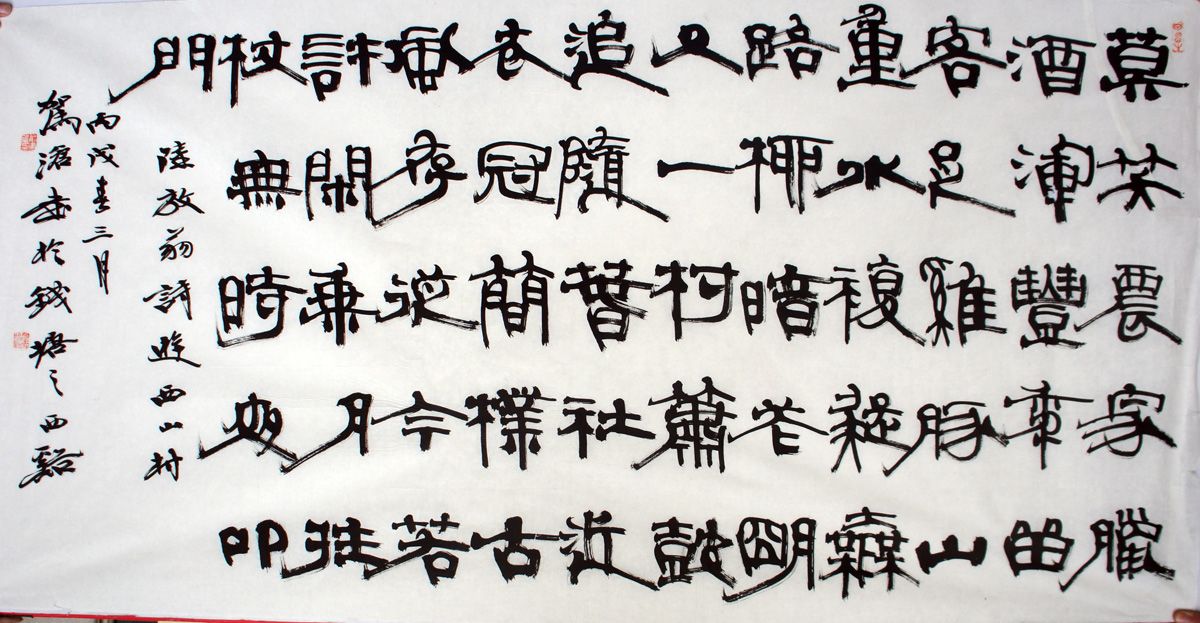 莫笑農家臘
酒渾豐年留
客足雞豚山
重水複疑無
路柳暗花明
又一村蕭鼓
追隨春社近
衣冠簡樸古
風存從今若
許閑乘月拄
杖無時夜叩
門
陸放翁詩遊西山村
丙戌春三月
駕滄書於錢塘之西谿